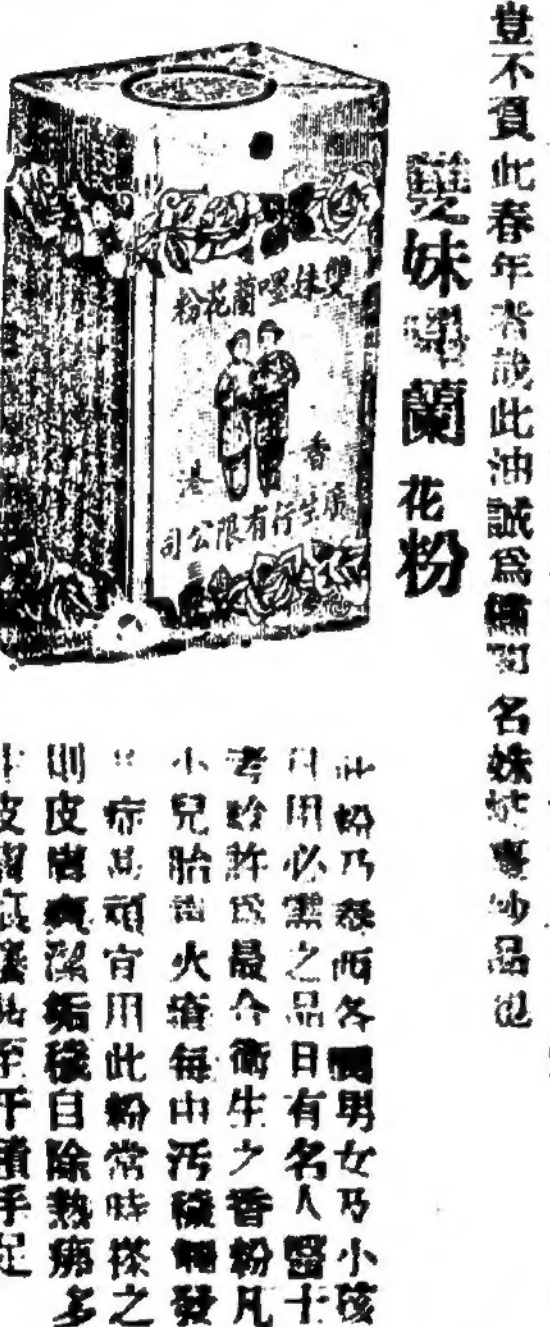 豈不負此春年者哉此油誠為繡閣名姝妝臺妙品也
雙妹嘜蘭花粉
雙妹嘜蘭花粉
香港
廣生行有限公司
此粉乃泰西各國男女乃小孩
日用必需之品日有名人醫士
考驗許為最合衛生之香粉凡
小兒胎毒火瘡每由污穢觸發
症為頑宜用此粉常時搽之
則皮膚爽潔垢穢自除熱痱多
皮膚 至于頭手足